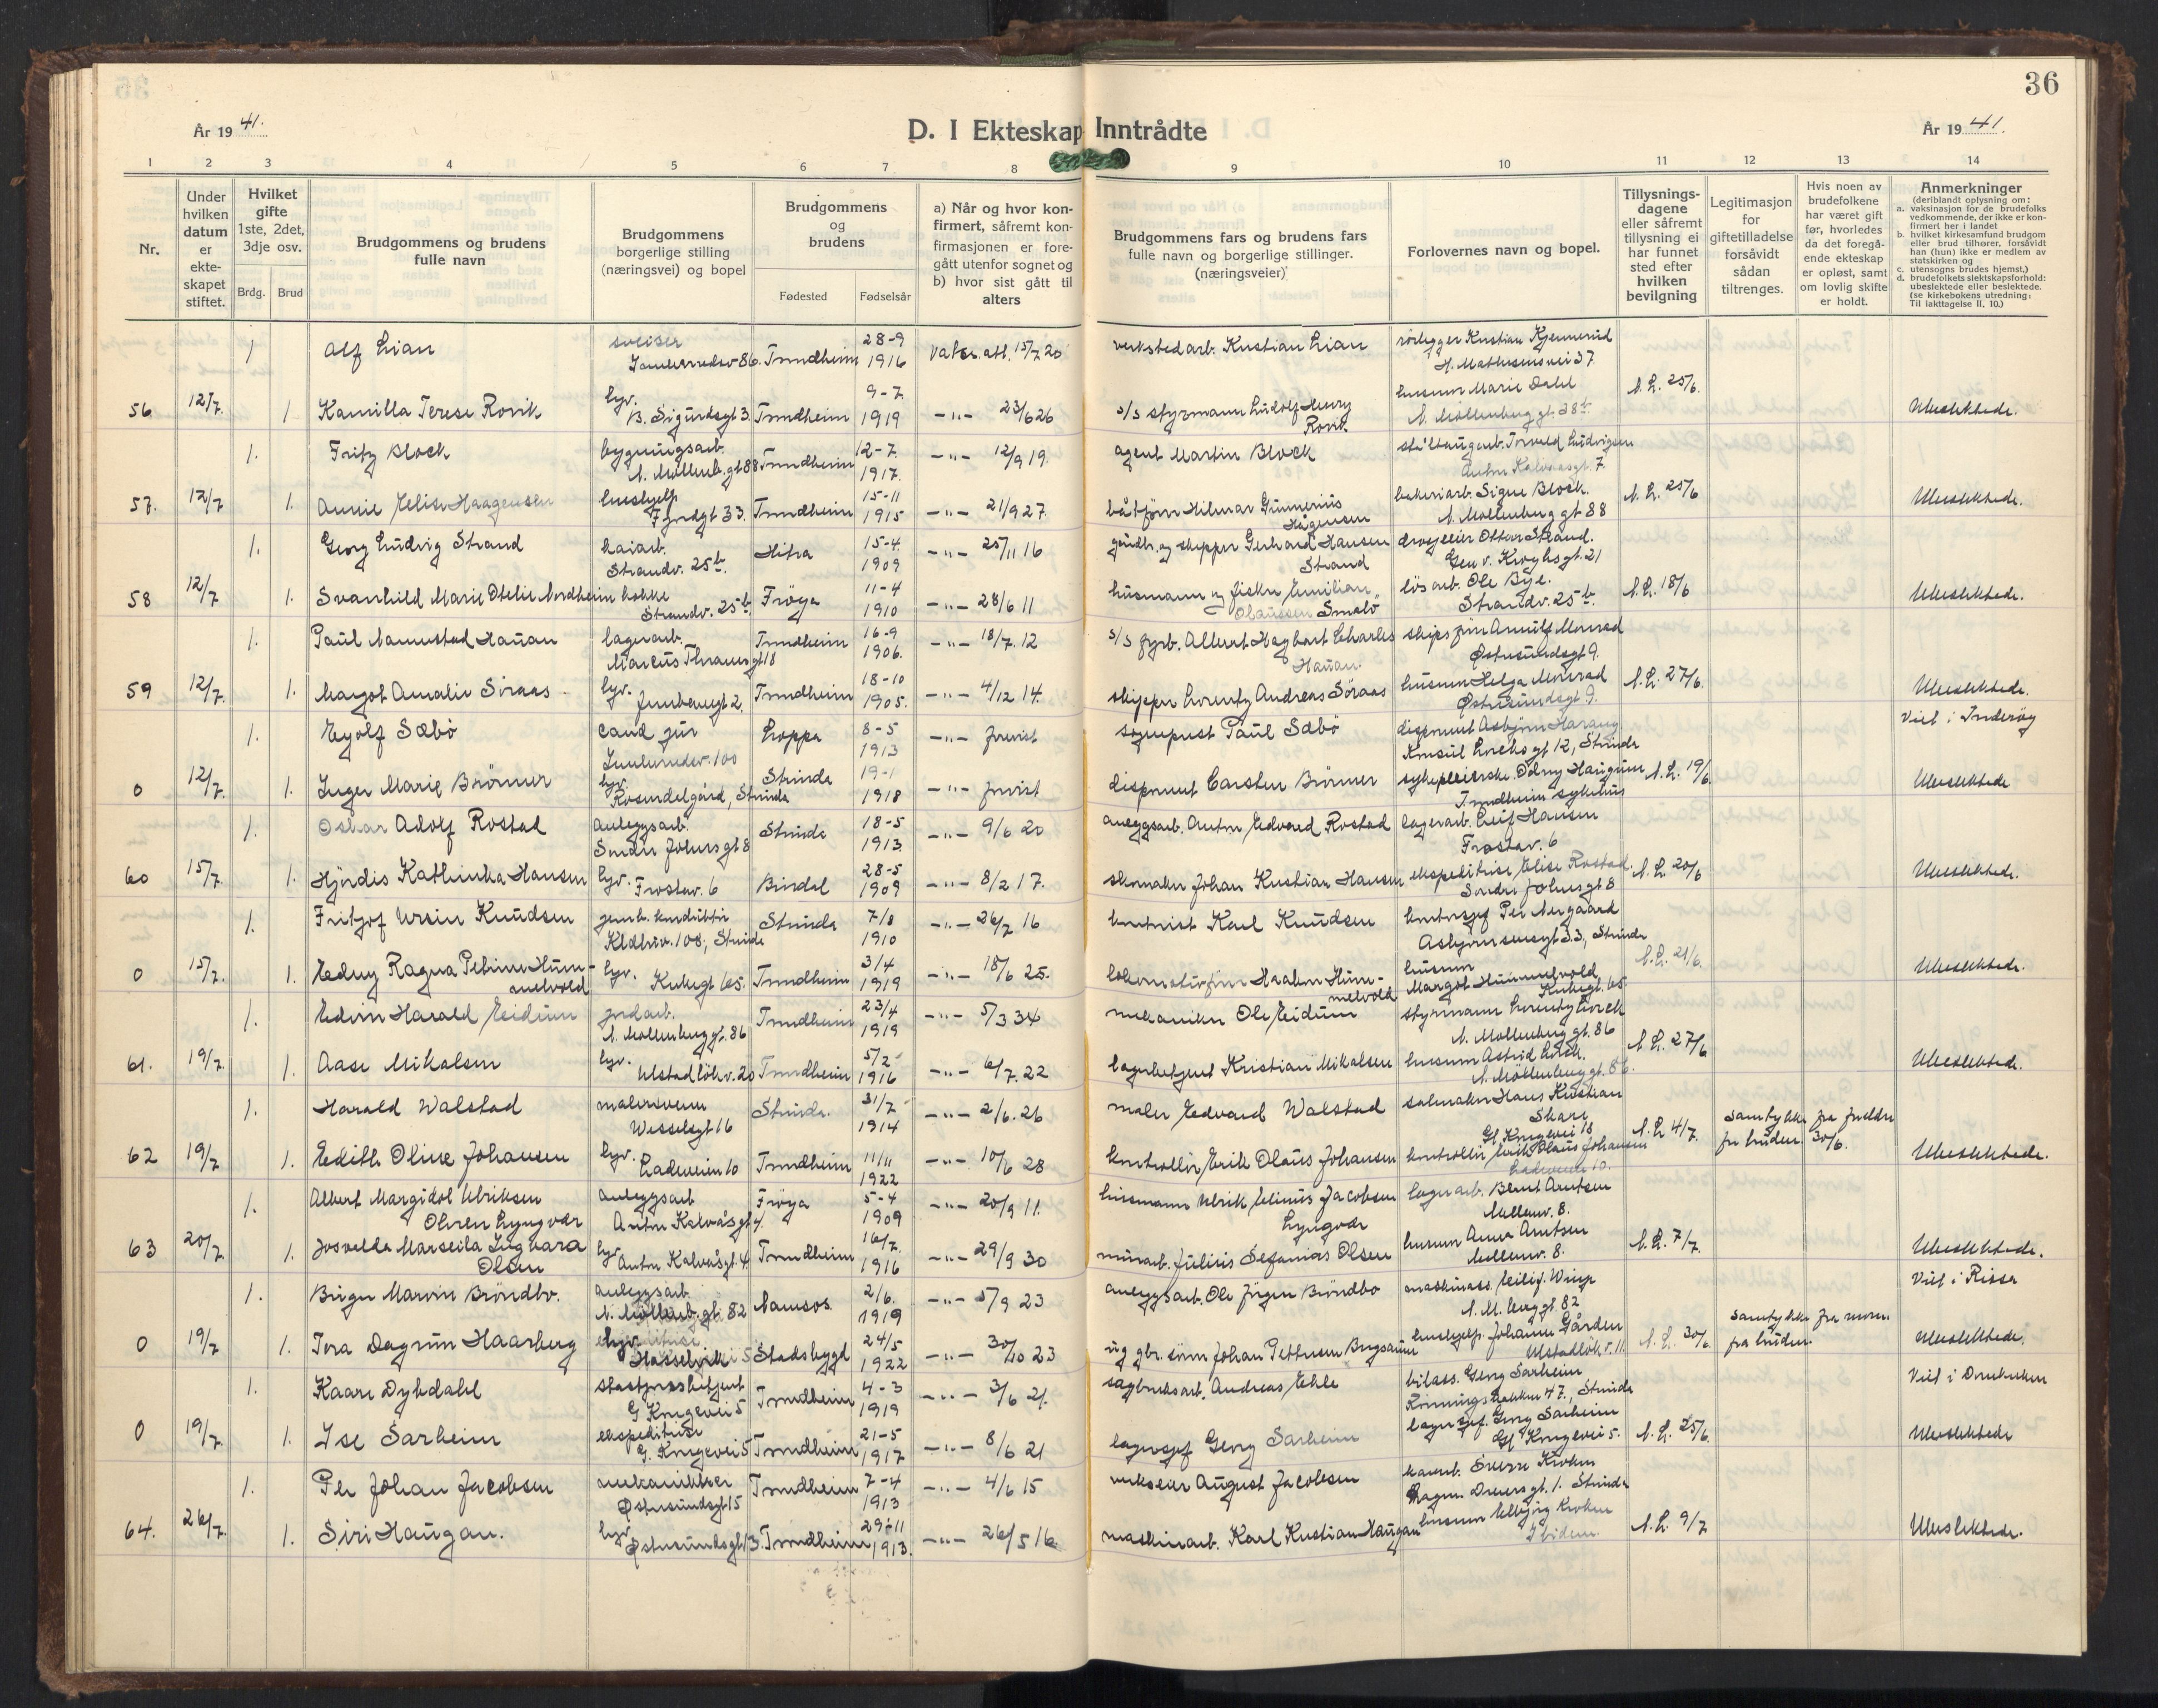 36
År 1941.
D. I Ekteskap Inntrådte
År 1941.
1 2 3 4 5 6 7 8 9 10 11 12 13 14
Nr.
Under hvilken datum er ekteskapet stiftet.
Hvilket gifte 1ste, 2det, 3dje osv.
Brdg. Brud
Brudgommens og brudens fulle navn
Brudgommens borgerlige stilling (næringsvei) og bopel
Brudgommens og brudens
Fødested Fødselsår
a) Når og hvor konfirmert, såfremt konfirmasjonen er foregått utenfor sognet og b) hvor sist gått til alters
Brudgommens fars og brudens fars fulle navn og borgerlige stillinger. (næringsveier)
Forlovernes navn og bopel.
Tillysningsdagene eller såfremt tillysning ei har funnet sted efter hvilken bevilgning
Legitimasjon for giftetilladelse forsåvidt sådan tiltrenges.
Hvis noen av brudefolkene har været gift før, hvorledes da det foregående ekteskap er opløst, samt om lovlig skifte er holdt.
Anmerkninger
(deriblandt oplysning om:
a. vaksinasjon for de brudefolks vedkommende, der ikke er konfirmert her i landet
b. hvilket kirkesamfund brudgom eller brud tilhører, forsåvidt han (hun) ikke er medlem av statskirken og
c. utensogns brudes hjemst.)
d. brudefolkets slektskapsforhold: ubeslektede eller beslektede.
(se kirkebokens utredning: Til iakttagelse II, 10.)
1 Alf Lian sveiser 86. Trondheim 28-9 1916 vaks. att. 15/7 20 verkstedarb. Kristian Lian rørlegger Kristian Kjennerud H. Mathesensvei 37
56 12/7 1. Kamilla Terese Rovik hv. B. Sigurdsgt 3. Trondheim 9-7 1919 -"- 23/6 26 s/s styrmann Ludolf Henry Rovik husmor Marie Dahl N. Møllenberg gt 28b N.L. 25/6. Ubeslektede.
1. Fritz Block bygningsarb. N. Møllenb. gt 88 Trondheim 12-7. 1917. -"- 12/9 19. agent Martin Block Torvald Ludvigsen Anton Kalvaasgt. 7
57. 12/7 1. Annie Elise Haagensen hushjelp Fjordgt 33. Trondheim 15-11 1915 -"- 21/9 27. båtfører Hilmar Gunnerius Hågensen bakeriarb. Signe Block. N. Møllenberg gt 88 N.L. 25/6 Ubeslektede.
1. Georg Ludvig Strand kaiarb. Strandv. 25b. Hitra 15-4. 1909 -"- 25/11 16 gårdbr. og skipper Gerhard Hansen Strand drosjeeier Ottar Strand. Gen v. Kroghsgt. 21
58 12/7 1. Svanhild Marie Otelie Nordheim kokke Strandv. 25b. Frøya 11-4 1910 -"- 28/6 11 husmann og fisker Emilian Olaussen Småbo løsarb. Ole Bye. Strandv. 25b. N.L. 18/6 Ubeslektede.
1. Paul Namestad Hauan lagerarb. Marcus Thranesgt 18 Trondheim 16-9 1906. -"- 18/7. 12 s/s fyrb. Albert Hagbart Charles Hauan. skipsfører Arnulf Monrad Østersundsgt 9.
59 12/7. 1. Margot Amalie Søraas hv. Jernbanegt 2. Trondheim 18-10 1905. -"- 4/12 14. skipper Lorentz Andreas Søraas husmor Helga Monrad Østersundsgt. 9. N.L. 27/6. Ubeslektede.
1. Eyolf Sæbø cand jur 100 Loppa 8-5 1913 -"- forrist sogneprest Paul Sæbø disponent Asbjørn Harang Konsul Lorchs gt 12, Strinda Viet i Inderøy
0 12/7. 1. Inger Marie Brörmer hv. Rosendalgård, Strinda Strinda 19-1 1918 -"- forrist disponent Carsten Brörmer sykepleierske Odny Haugrim Trondheim sykehus N.L. 19/6. Ubeslektede
1. Oskar Adolf Rostad anleggsarb. Søndre Johnsgt 8 Strinda 18-5 1913 -"- 9/6 20 anleggsarb. Anton Edvard Rostad lagerarb. Leif Hansen Frostav. 6
60 15/7. 1. Hjørdis Kathinka Hansen hv. Frostav. 6 Bindal 28-5 1909 -"- 8/2 17. skomaker Johan Kristian Hansen ekspeditrise Elise Rostad. Søndre Johnsgt 8 N.L. 20/6 Ubeslektede.
1. Fritjof Ursin Knudsen jernb. konduktør 108, Strinda Strinda 7/8 1910 -"- 26/7 16 kontorist Karl Knudsen kontorsjef Per Nergaard Asbjørnsensgt 33, Strinda
0 15/7. 1. Edny Ragna Petrine Hummelvold hv. Kirkegt 65. Trondheim 3/4 1919 -"- 18/6 25. lokomotivfører Haakon Hummelvold husmor Margot Hummelvold Kirkegt. 65. N.L. 21/6. Ubeslektede.
1. Edvin Harald Eidum jordarb. N. Møllenberggt. 86 Trondheim 23/4 1919 -"- 5/3 34 mekaniker Ole Eidum styrmann Lorentz Lorck N. Møllenberg gt. 86
61. 19/7. 1. Aase Mikalsen hv. Ulstadløkv. 20 Trondheim 5/2 1916 -"- 6/7. 22 lagerbetjent Kristian Mikalsen husmor Astrid Lorck. N. Møllenberg gt. 86. N.L. 27/6 Ubeslektede.
1. Harald Walstad malersvenn Wesselsgt 16 Strinda. 31/7 1914 -"- 2/6. 26 maler Edvard Walstad salmaker Hans Kristian Skare Gl. Kongevei 18
62 19/7 1. Edith Oline Johansen hv. Ladeveien 10 Trondheim 11/11 1922 -"- 10/6 28 kontrollør Erik Olaus Johansen kontrollør Erik Olaus Johansen Ladeveien 10. N.L. 4/7. Samtykke fra foreldre for bruden 30/6. Ubeslektede.
1. Albert Margidol Ulriksen Olsen Lyngvær anleggsarb Anton Kalvåsgt 4. Frøya 5-4 1909 -"- 20/9 11. husmann Ulrik Elinus Jacobsen Lyngvær lagerarb. Bernt Arntsen Mellemv. 8.
63 20/7. 1. Josvelda Marseila Ingvara Olsen hv. Anton Kalvåsgt. 4. Trondheim 16/7. 1916 -"- 29/9 30 murarb. Julius Sefanias Olsen husmor Anna Arntsen Mellemv. 8. N.L. 7/7. Ubeslektede.
1. Birger Marvin Brøndbo. anleggsarb N. Møllenb. gt. 82 Namsos 2/6. 1919 -"- 5/9 23 anleggsarb. Ole Jørgen Brøndbo maskinass. Winje N. M. berg gt. 82 Viet i Rissa
0 19/7. 1. Tora Dagrun Haarberg hv. Hasselvik Stadsbygd 24/5 1922 -"- 30/10 23 ug gbr. sønn Johan Petersen hushjelp. Johanne Gården Ulstadløkv. 11 N.L. 30/6. Samtykke fra moren for bruden. Ubeslektede.
1. Kaare Dybdahl G Kongevei 5 Trondheim 4-3 1919 -"- 3/6 21. sagbruksarb. Andreas Ekle bilass. Georg Sarheim 47, Strinda Viet i Domkirken
0 19/7. 1. Ise Sarheim ekspeditrise G. Kongevei 5 Trondheim 21-5 1917 -"- 8/6 21 lagersjef Georg Sarheim lagersjef. Georg Sarheim Gl Kongevei 5. N.L. 25/6. Ubeslektede
1. Per Johan Jacobsen mekaniker Østersundsgt 15 Trondheim 7-4 1913 -"- 4/6 15 verkseier August Jacobsen Sverre Kroken Strinda
64. 26/7. 1. Siri Haugan. hv. Østersundsgt 13. Trondheim 29-11 1913. -"- 26/5 16. maskinarb. Karl Kristian Haugan husmor Kroken Ibidem N.L. 9/7 Ubeslektede.